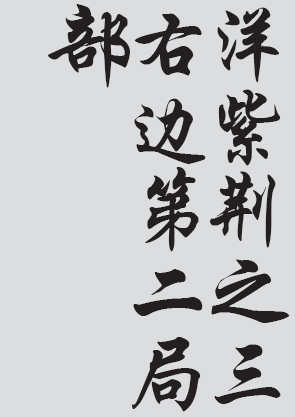 洋紫荆之三
右边第二局
部